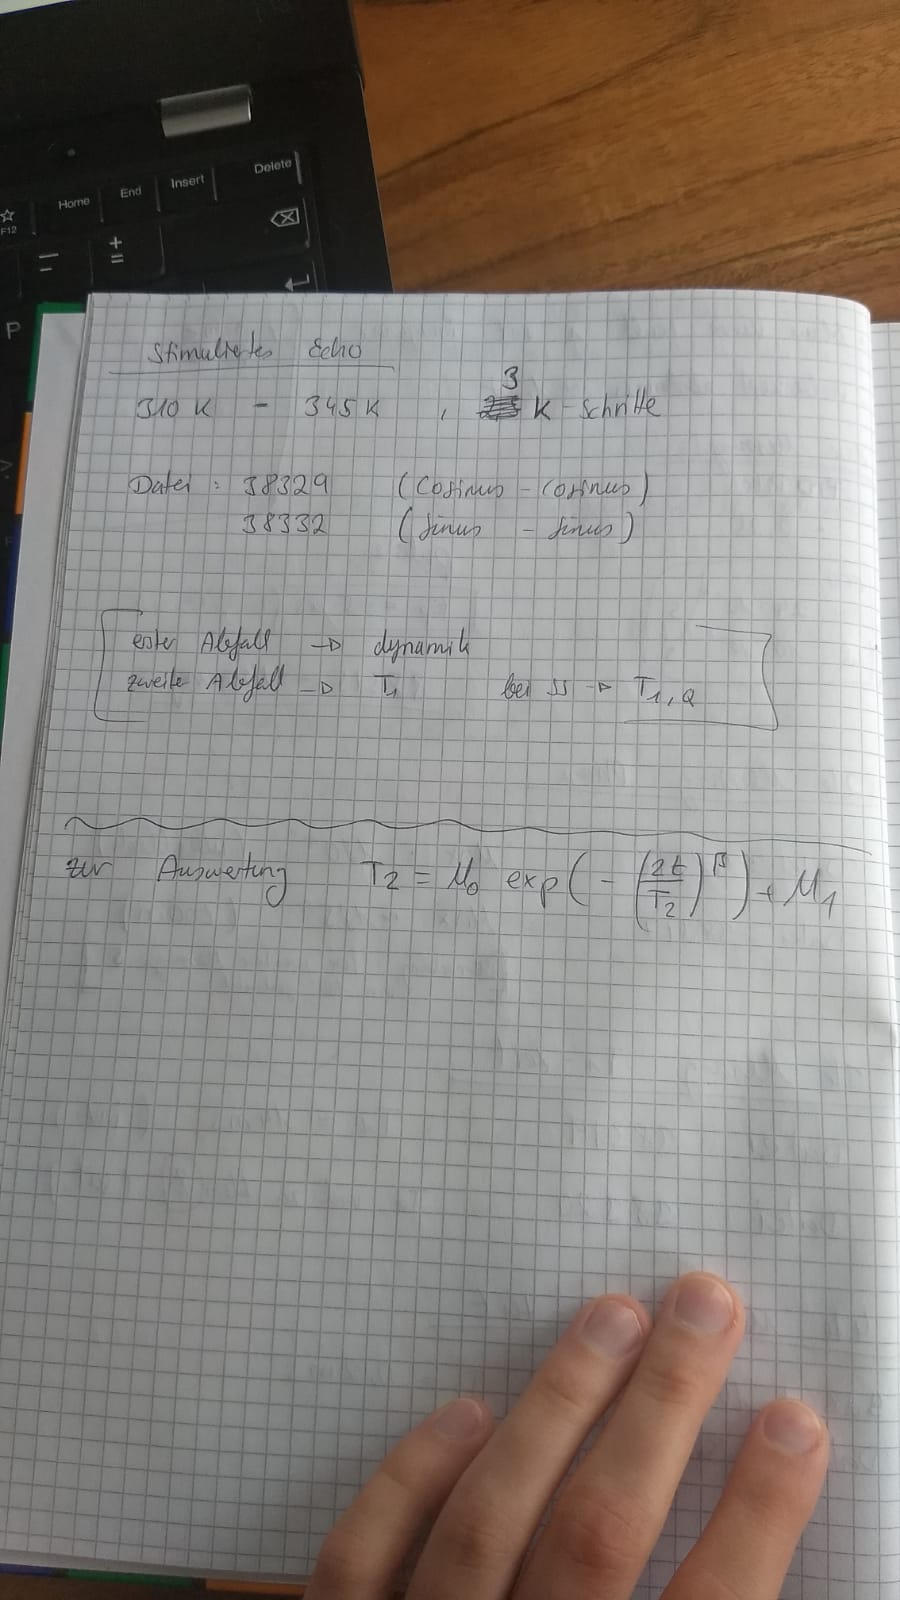 Delete
Insert
End
Home
F12
P
Stimuliertes Echo
3
310 K - 345 K , K-Schritte
Datei : 38329 (Cosinus - cosinus)
38332 (sinus - sinus)
erster Abfall → dynamik
zweite Abfall → T₁ bei SS → T₁,Q
zur Auswertung T₂ = M₀ exp(-(2t/T₂)^β) + M₁